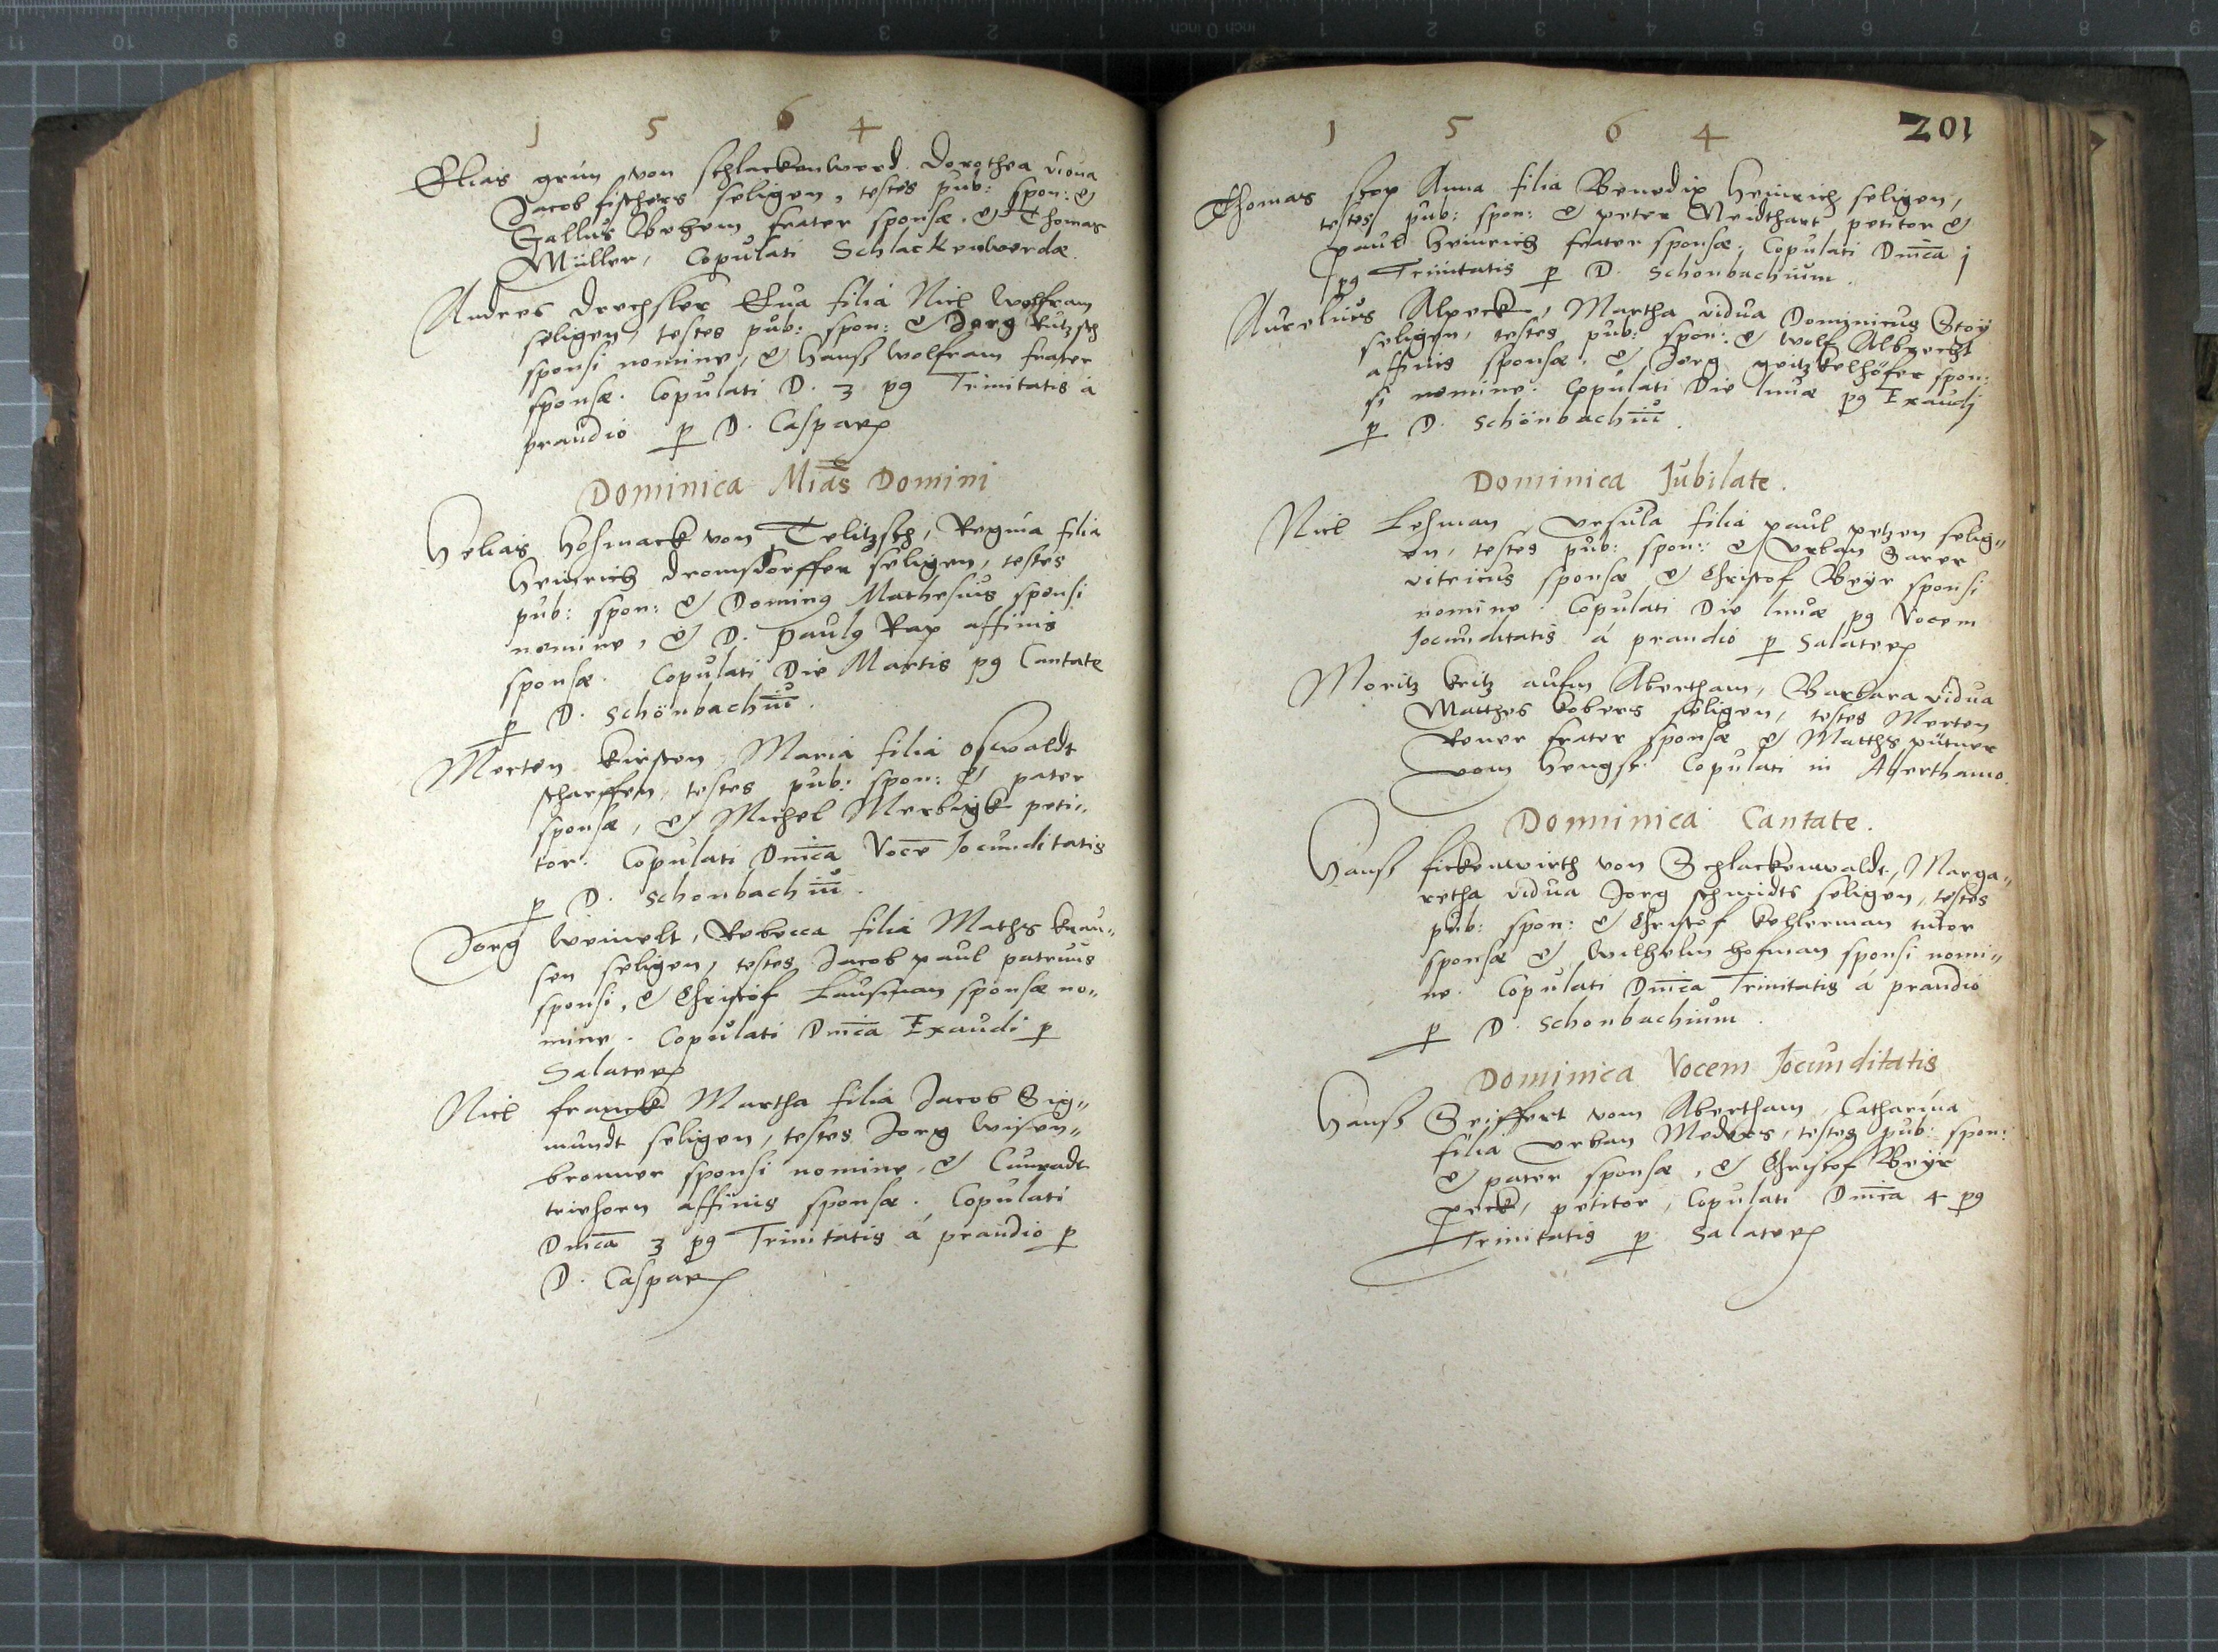 1 5 6 4
Elias grün von Schlackenwerd, Dorothea vidua
Jacob fischers seligen, testes pub: spon: &
Gallus Behem frater sponsæ, & Thomas
Müller, Copulati Schlackenwerdæ.
Andres Drechsler Eva filia Nicl Wolfram
seligen, testes pub: spon: & Jorg
sponsi nomine, & Hanß Wolfram frater
sponsæ. Copulati D. 3 pg Trinitatis a
prandio p D. Caspar
Dominica Mias Domini
Helias Hofmack von Delitzsch, Regina filia
Heinrich Dromsdorffer seligen, testes
pub: spon: & Doming Mathesius sponsi
nomine, & D. Paulg Rax affinis
sponsæ. Copulati Die Martis pg Cantate
p D. Schönbachiu.
Merten Kirsten, Maria filia Oswaldt
Scharffen, testes pub: spon: & pater
sponsæ, & Michel peti„
tor. Copulati Dnica Voce Jocunditatis
p D. Schonbachiu.
Jorg Weinelt, Rebecca filia Maths Krau„
sen seligen, testes Jacob Paul patruus
sponsi, & Christof Lausman sponsæ no„
mine. Copulati Dnica Exaudi p
Salater
Nicl Franck Martha filia Jacob Sig„
mundt seligen, testes Jorg Wisen„
bronner sponsi nomine, & Cunradt
triehorn affinis sponsæ. Copulati
Dnica 3 pg Trinitatis á prandio p
D. Caspar
1 5 6 4
201
Thomas Stox Anna filia Benedix Heinrich seligen,
testes pub: spon: & peter Neidthart petitor &
paul Heinrich frater sponsæ. Copulati Dnica j
pg Trinitatis p D. Schonbachium.
Aurelius Alpeck, Martha vidua Dominicus Stoy
seligen, testes pub: spon: & Wolf Albrecht
affinis sponsæ, & Jorg spon:
si nomine. Copulati Die lunæ pg Exaudj
p D. Schönbachiu.
Dominica Jubilate.
Nicl Lehman, Ursula filia paul petzen selig„
en, testes pub: spon: & Urban Sarer
vitricus sponsæ & Christof Beyr sponsi
nomine. Copulati Die lunæ pg Vocem
Jocunditatis á prandio p Salater
Moritz Kritz aufm Abertham, Barbara vidua
Matthes Kobers seligen, testes Merten
Rener frater sponsæ & Matths pütner
vom Hengst. Copulati in Aberthamo.
Dominica Cantate.
Hanß fickenwirth von Schlackenwaldt, Marga„
retha vidua Jorg Schmidts seligen, testes
pub: spon: & Christof Kellerman tutor
sponsæ & Wilhelm Hofman sponsi nomi„
ne. Copulati Dnica Trinitatis á prandio
p D. Schonbachium.
Dominica Vocem Jocunditatis
Hanß Seiffert vom Abertham, Catharina
filia Urban Meders, testes pub: spon:
& pater sponsæ, & Christof Beyr
peck, petitor, Copulati Dnica 4 pg
Trinitatis p Salater